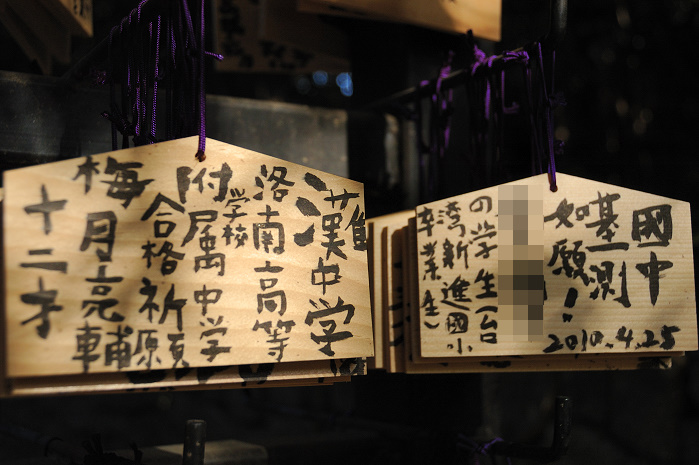 灘中学
洛南高等
学校
附属中学
合格祈願
梅月亮輔
十二才
國中
基測
如願！
の学生（台
湾新進國小
卒業生）
2010.4.25